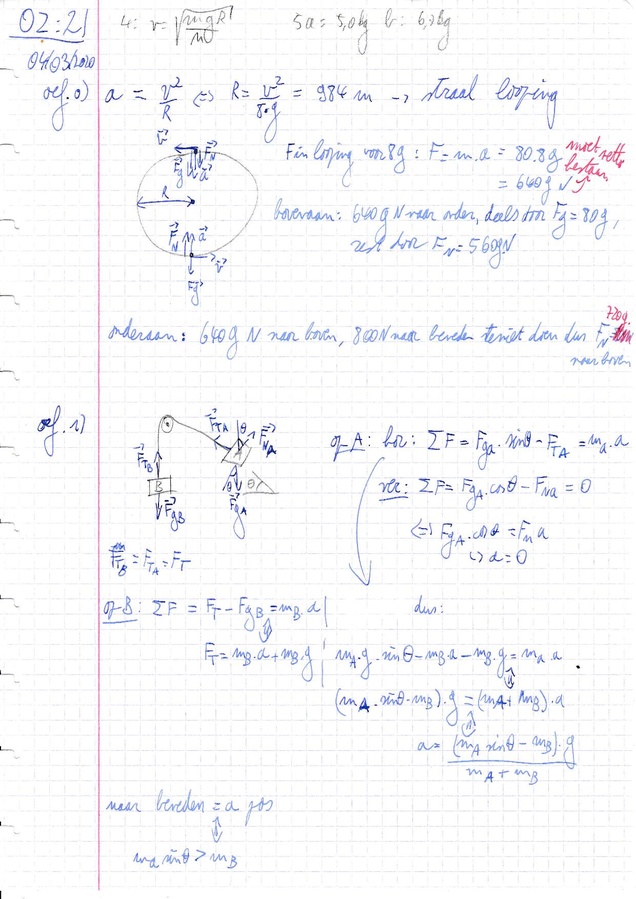 OZ:21
4: v = √(mgR/m)   5a = 5,0kg b: 6,0kg
04/03/2020
oef. 0) a = v²/R ⇔ R = v²/8·g = 984 m → straal looping
F in looping voor 8g: F = m.a = 80.8g
= 640g N
moet netto bestaan
v F_N
F_g a
R
F_N a
v
F_g
bovenaan: 640g N naar onder, deels door F_g = 80g,
rest door F_N = 560gN
onderaan: 640g N naar boven, 800N naar beneden teniet doen dus F_N = 720g
naar boven
oef. 1)
F_TA θ F_NA
F_TB A
B θ θ
F_gB F_gA
op A: hor: ΣF = F_ga · sinθ - F_TA = m_a · a
ver: ΣF = F_gA · cosθ - F_Na = 0
⇔ F_gA · cosθ = F_N a
↳ a = 0
F_TB = F_TA = F_T
op B: ΣF = F_T - F_gB = m_B · a | dus:
F_T = m_B · a + m_B · g | m_A · g · sinθ - m_B · a - m_B · g = m_a · a
(m_A · sinθ - m_B) · g = (m_A + m_B) · a
a = (m_A sinθ - m_B) · g / m_A + m_B
naar beneden = a pos
m_a sinθ > m_B